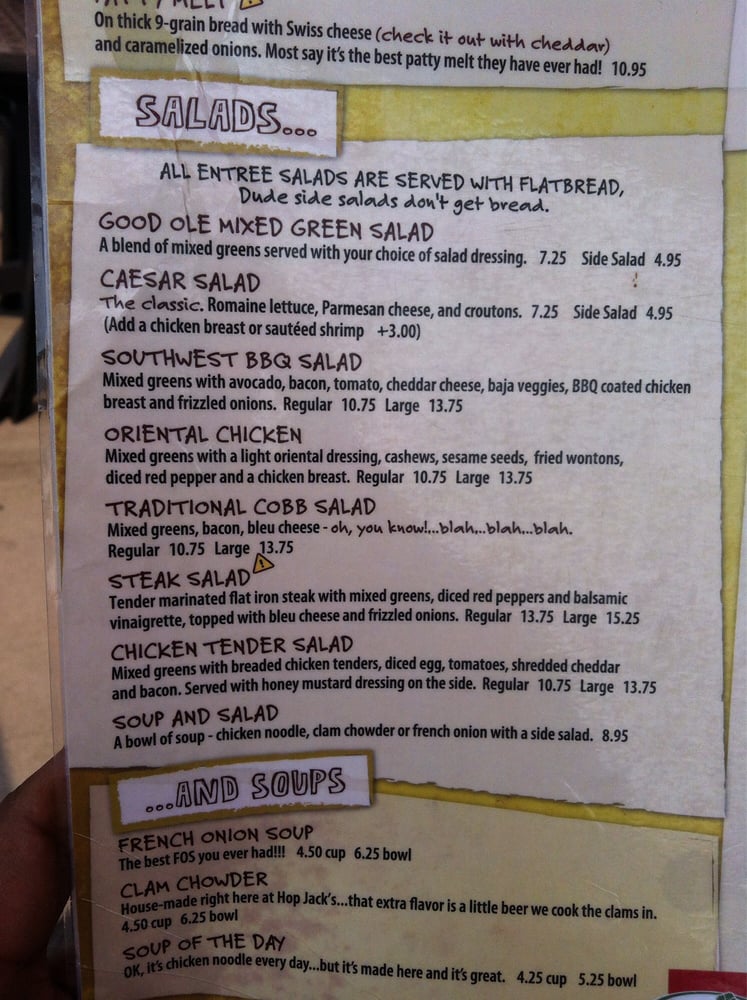 PATTY MELT
On thick 9-grain bread with Swiss cheese (check it out with cheddar)
and caramelized onions. Most say it's the best patty melt they have ever had! 10.95
SALADS...
ALL ENTREE SALADS ARE SERVED WITH FLATBREAD,
Dude side salads don't get bread.
GOOD OLE MIXED GREEN SALAD
A blend of mixed greens served with your choice of salad dressing. 7.25 Side Salad 4.95
CAESAR SALAD
The classic. Romaine lettuce, Parmesan cheese, and croutons. 7.25 Side Salad 4.95
(Add a chicken breast or sautéed shrimp +3.00)
SOUTHWEST BBQ SALAD
Mixed greens with avocado, bacon, tomato, cheddar cheese, baja veggies, BBQ coated chicken
breast and frizzled onions. Regular 10.75 Large 13.75
ORIENTAL CHICKEN
Mixed greens with a light oriental dressing, cashews, sesame seeds, fried wontons,
diced red pepper and a chicken breast. Regular 10.75 Large 13.75
TRADITIONAL COBB SALAD
Mixed greens, bacon, bleu cheese - oh, you know!...blah...blah...blah.
Regular 10.75 Large 13.75
STEAK SALAD
Tender marinated flat iron steak with mixed greens, diced red peppers and balsamic
vinaigrette, topped with bleu cheese and frizzled onions. Regular 13.75 Large 15.25
CHICKEN TENDER SALAD
Mixed greens with breaded chicken tenders, diced egg, tomatoes, shredded cheddar
and bacon. Served with honey mustard dressing on the side. Regular 10.75 Large 13.75
SOUP AND SALAD
A bowl of soup - chicken noodle, clam chowder or french onion with a side salad. 8.95
...AND SOUPS
FRENCH ONION SOUP
The best FOS you ever had!!! 4.50 cup 6.25 bowl
CLAM CHOWDER
House-made right here at Hop Jack's...that extra flavor is a little beer we cook the clams in.
4.50 cup 6.25 bowl
SOUP OF THE DAY
OK, it's chicken noodle every day...but it's made here and it's great. 4.25 cup 5.25 bowl